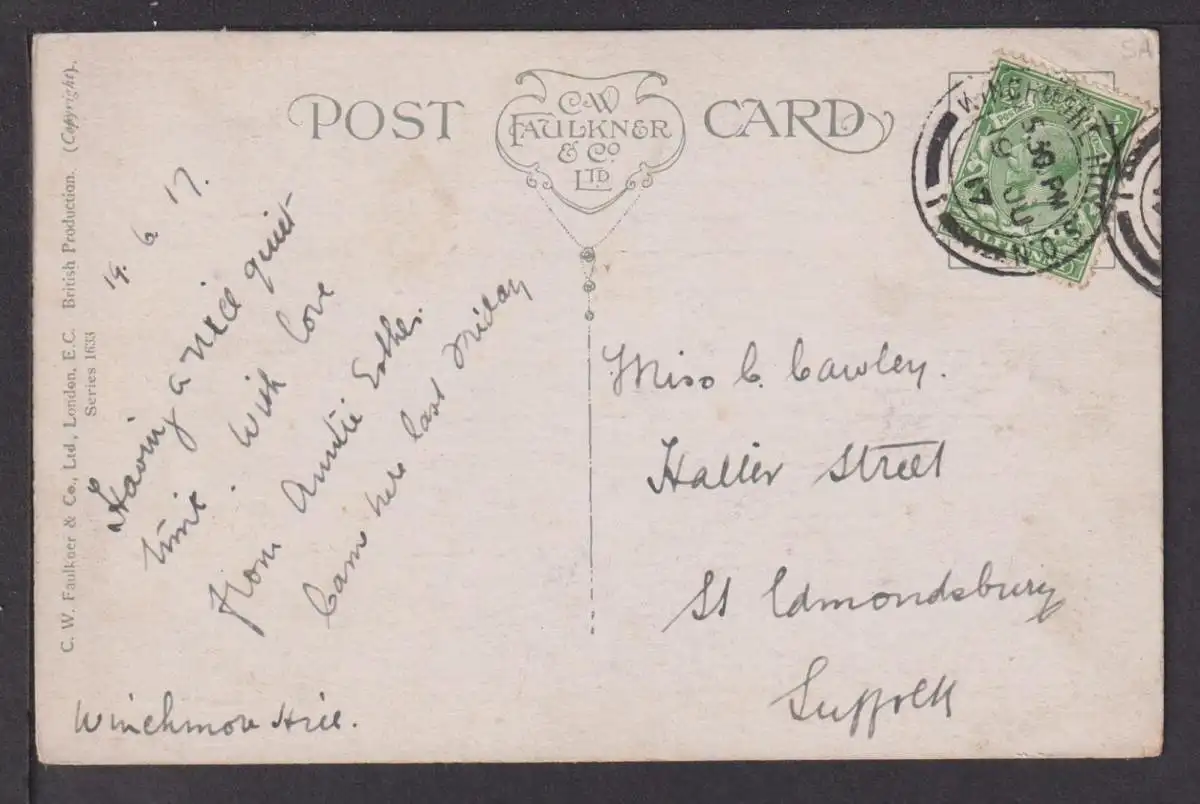 POST CARD
C.W
FAULKNER
& Co
LTD
C. W. Faulkner & Co., Ltd., London, E.C. British Production. (Copyright).
Series 1633
19. 6. 17.
Having a nice quiet
time. With love
from Auntie Esther.
Came here last Friday
Winchmore Hill.
Miss C. Cawley.
Hatter Street
St Edmondsbury
Suffolk
WINCHMORE HILL
S.O.N
5.30 PM
19 JU
17
SA